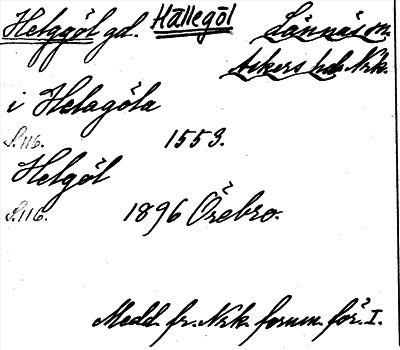 Helgöl gd. Hällegöl Lännäs sn.
Askers hd. Nrk.
i Helagöla
S. 116. 1553.
Helgöl
S. 116. 1896 Örebro.
Medd. fr. Nrk. fornm. för. I.